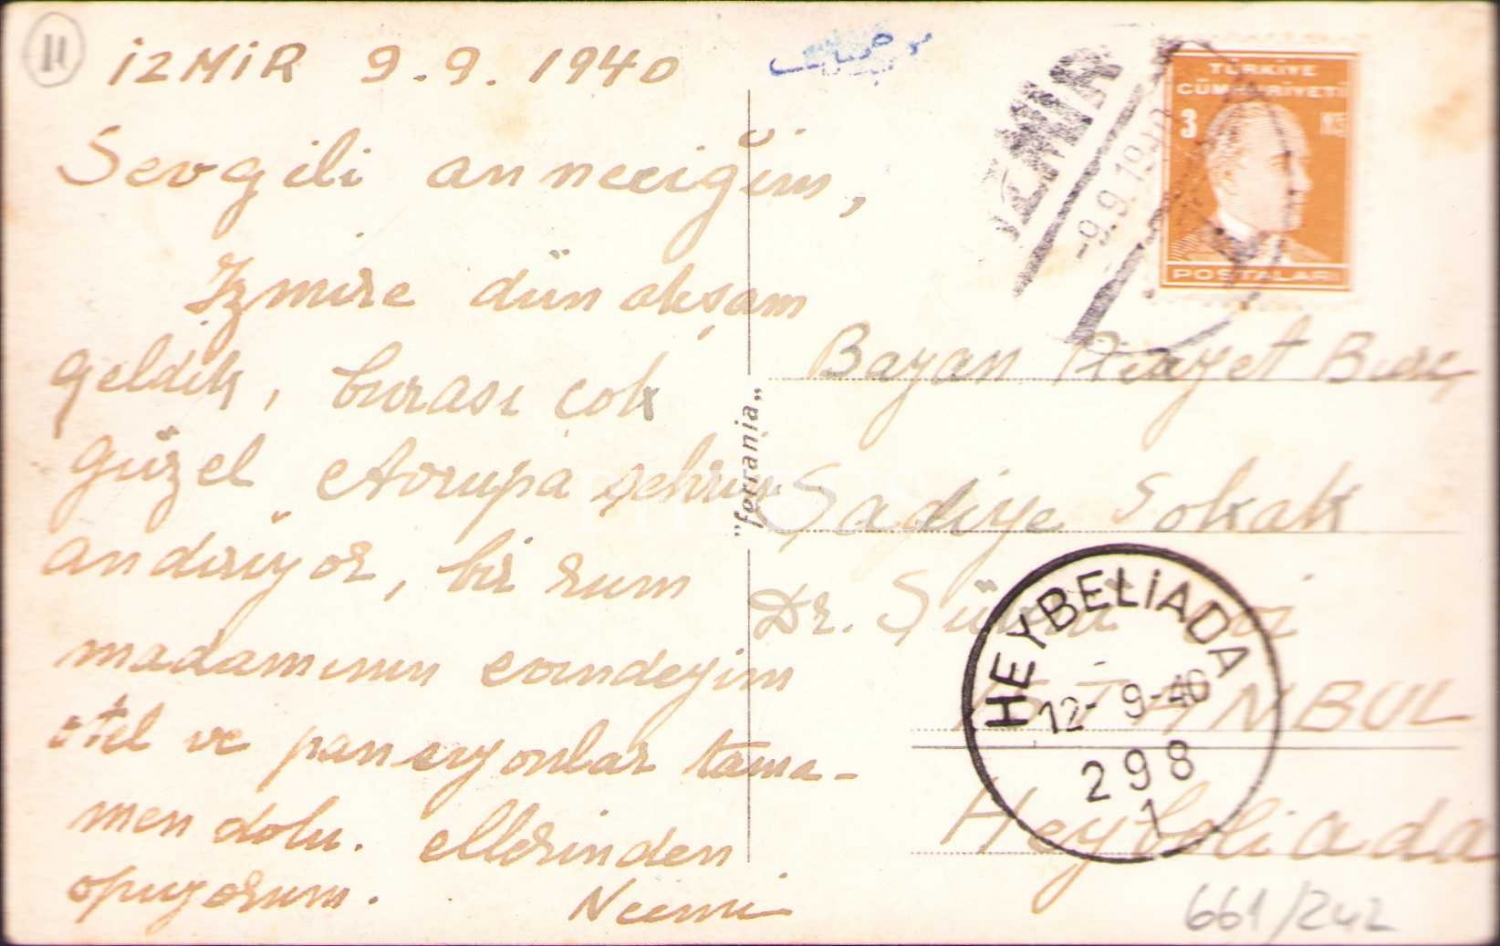 11
İZMİR 9.9.1940
Sevgili anneciğim,
İzmire dün akşam
geldik, burası çok
güzel Avrupa şehrini
andırıyor, bir rum
madamının evindeyim
otel ve pansiyonlar tama-
men dolu. ellerinden
öpüyorum. Necmi
"ferrania"
İZMİR
-9.9.1940
TÜRKİYE
CÜMHURİYETİ
3
POSTALARI
Bayan Riayet Burç
Sadiye Sokak
Dr. evi
İSTANBUL
Heybeliada
HEYBELİADA
12-9-40
298
1
661/242